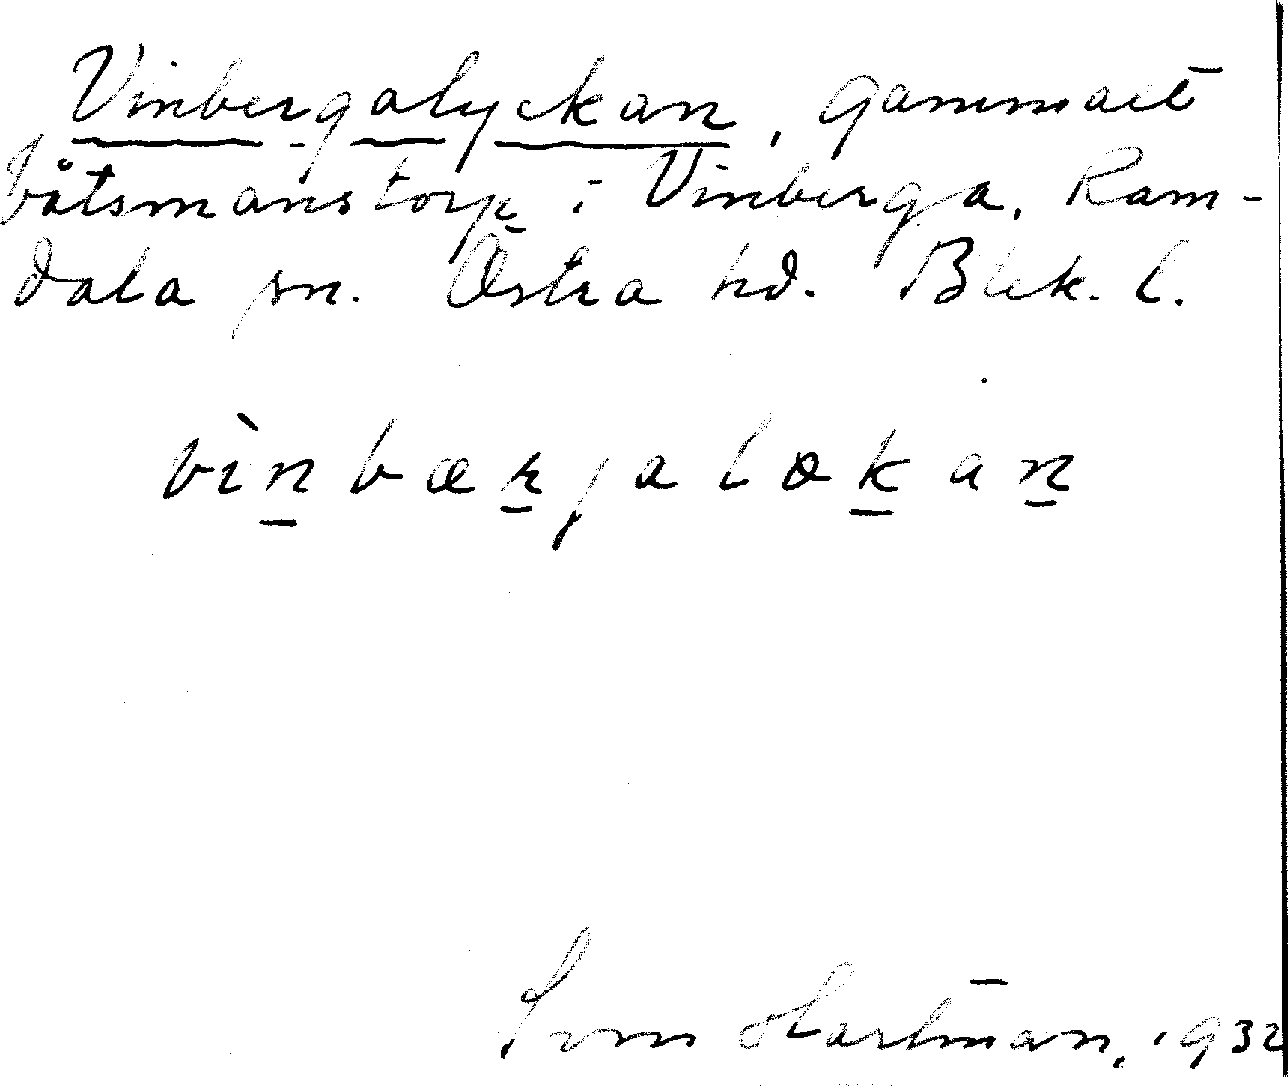 Vinbergalyckan, gammalt
båtsmanstorp i Vinberga, Ram-
dala sn. Östra hd. Blek. l.
vìn̲bær̲jalɷk̲an̲
Sven Hartman, 1932